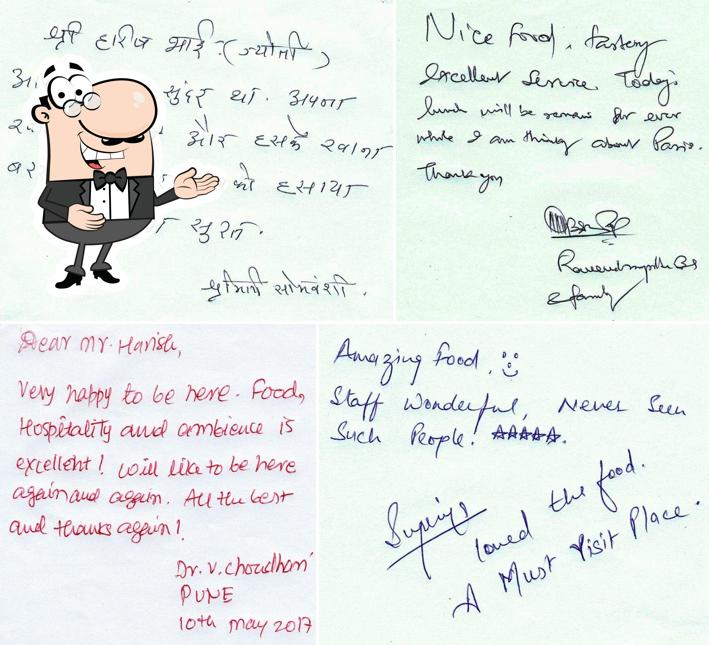 श्री हरीज भाई : (ज्योती)
सुंदर था. अपना
और इसके खाना
को हसाया
सुरत.
श्रीमती सोमवंशी.
Nice food, fastery
excellent service. Today's
lunch will be remain for ever
while I am thinking about Paris.
Thank you
& family
Dear Mr. Harish,
Very happy to be here. Food,
Hospitality and ambience is
excellent! will like to be here
again and again. All the best
and thanks again!
Dr. V. Choudhari
PUNE
10th may 2017
Amazing food.
Staff Wonderful, Never Seen
Such People! ☆☆☆☆☆.
loved the food.
A Must Visit Place.